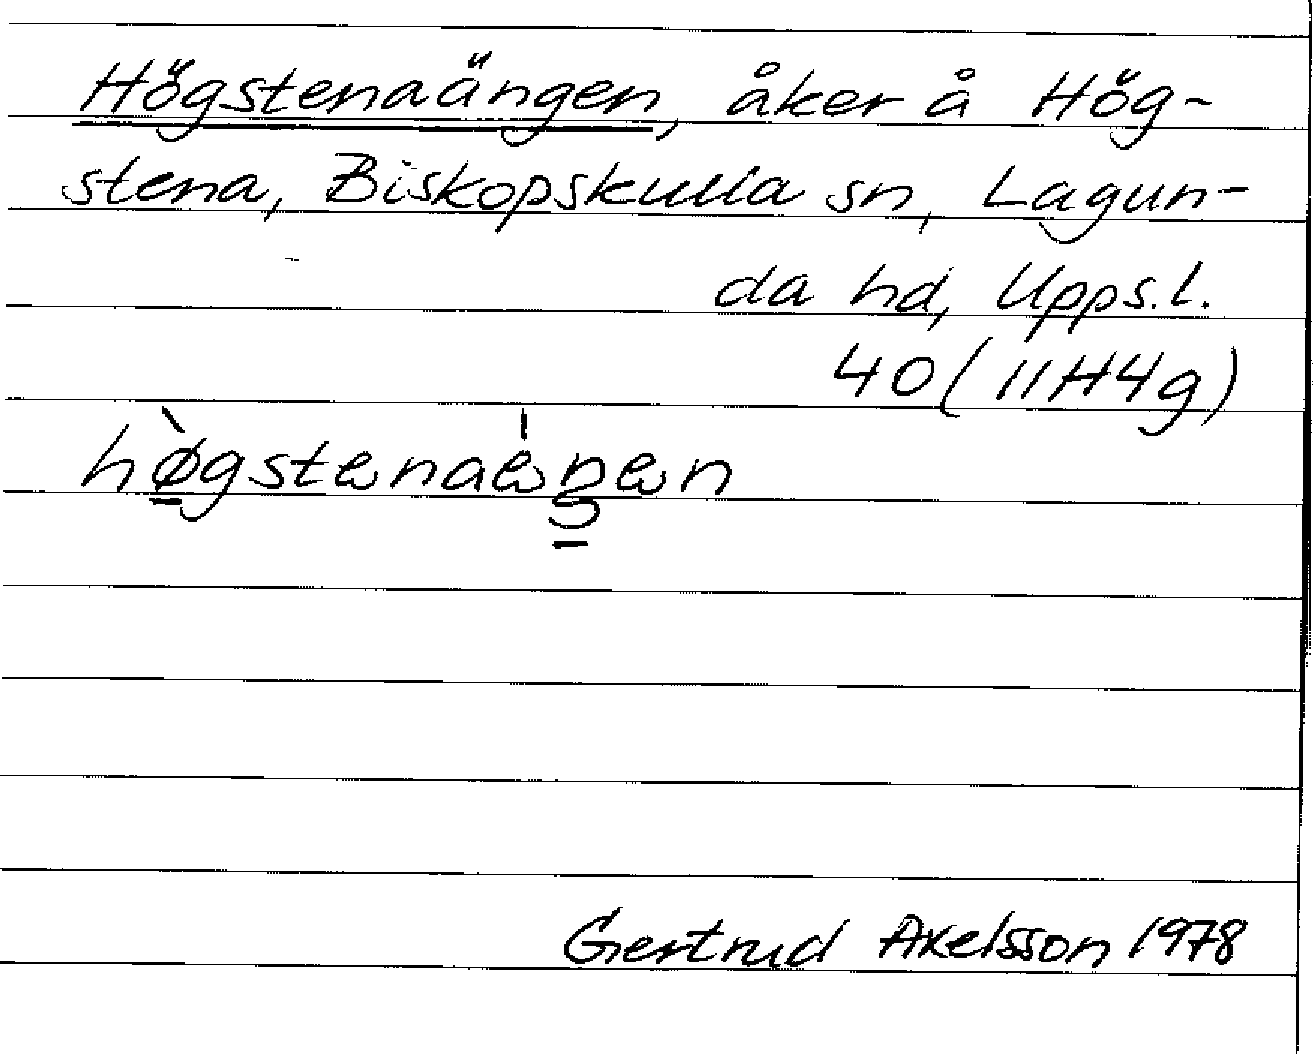 Högstenaängen, åker å Hög-
stena, Biskopskulla sn, Lagun-
da hd, Upps.l.
40(11H4g)
hø̀gstenaèngen
Gertrud Axelsson 1978